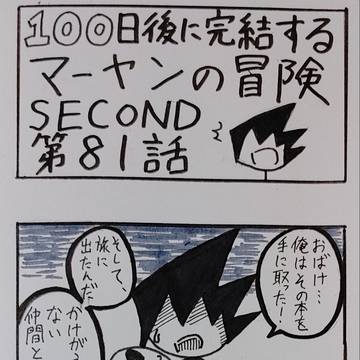 100日後に完結する
マーヤンの冒険
SECOND
第81話
おばけ…
俺はその本を
手に取った!
そして、
旅に
出たんだ!
かけが
ない
仲間と